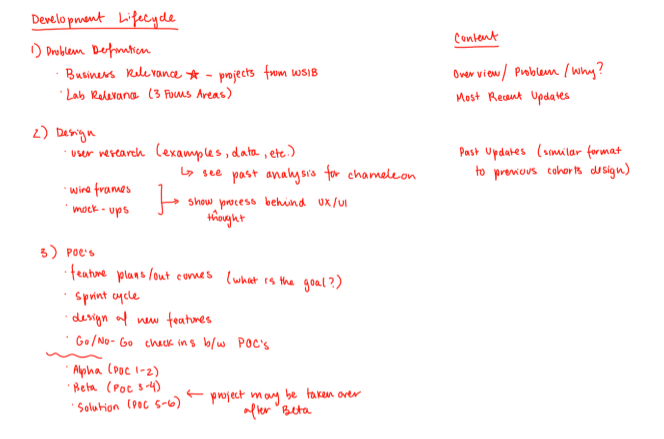 Development Lifecycle
1) Problem Definition
· Business Relevance ★ - projects from WSIB
· Lab Relevance (3 Focus Areas)
2) Design
· user research (examples, data, etc.)
↳ see past analysis for chameleon
· wireframes
· mock-ups
→ show process behind UX/UI
thought
3) POC's
· feature plans/outcomes (what is the goal?)
· sprint cycle
· design of new features
· Go/No-Go check ins b/w POC's
· Alpha (POC 1-2)
· Beta (POC 3-4)
· Solution (POC 5-6)
← project may be taken over
after Beta
Content
Overview/ Problem / Why?
Most Recent Updates
Past Updates (similar format
to previous cohorts design)